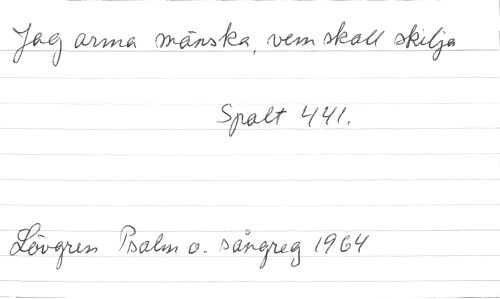 Jag arma mänska, vem skall skilja
Spalt 441.
Lövgren Psalm o. sångreg 1964